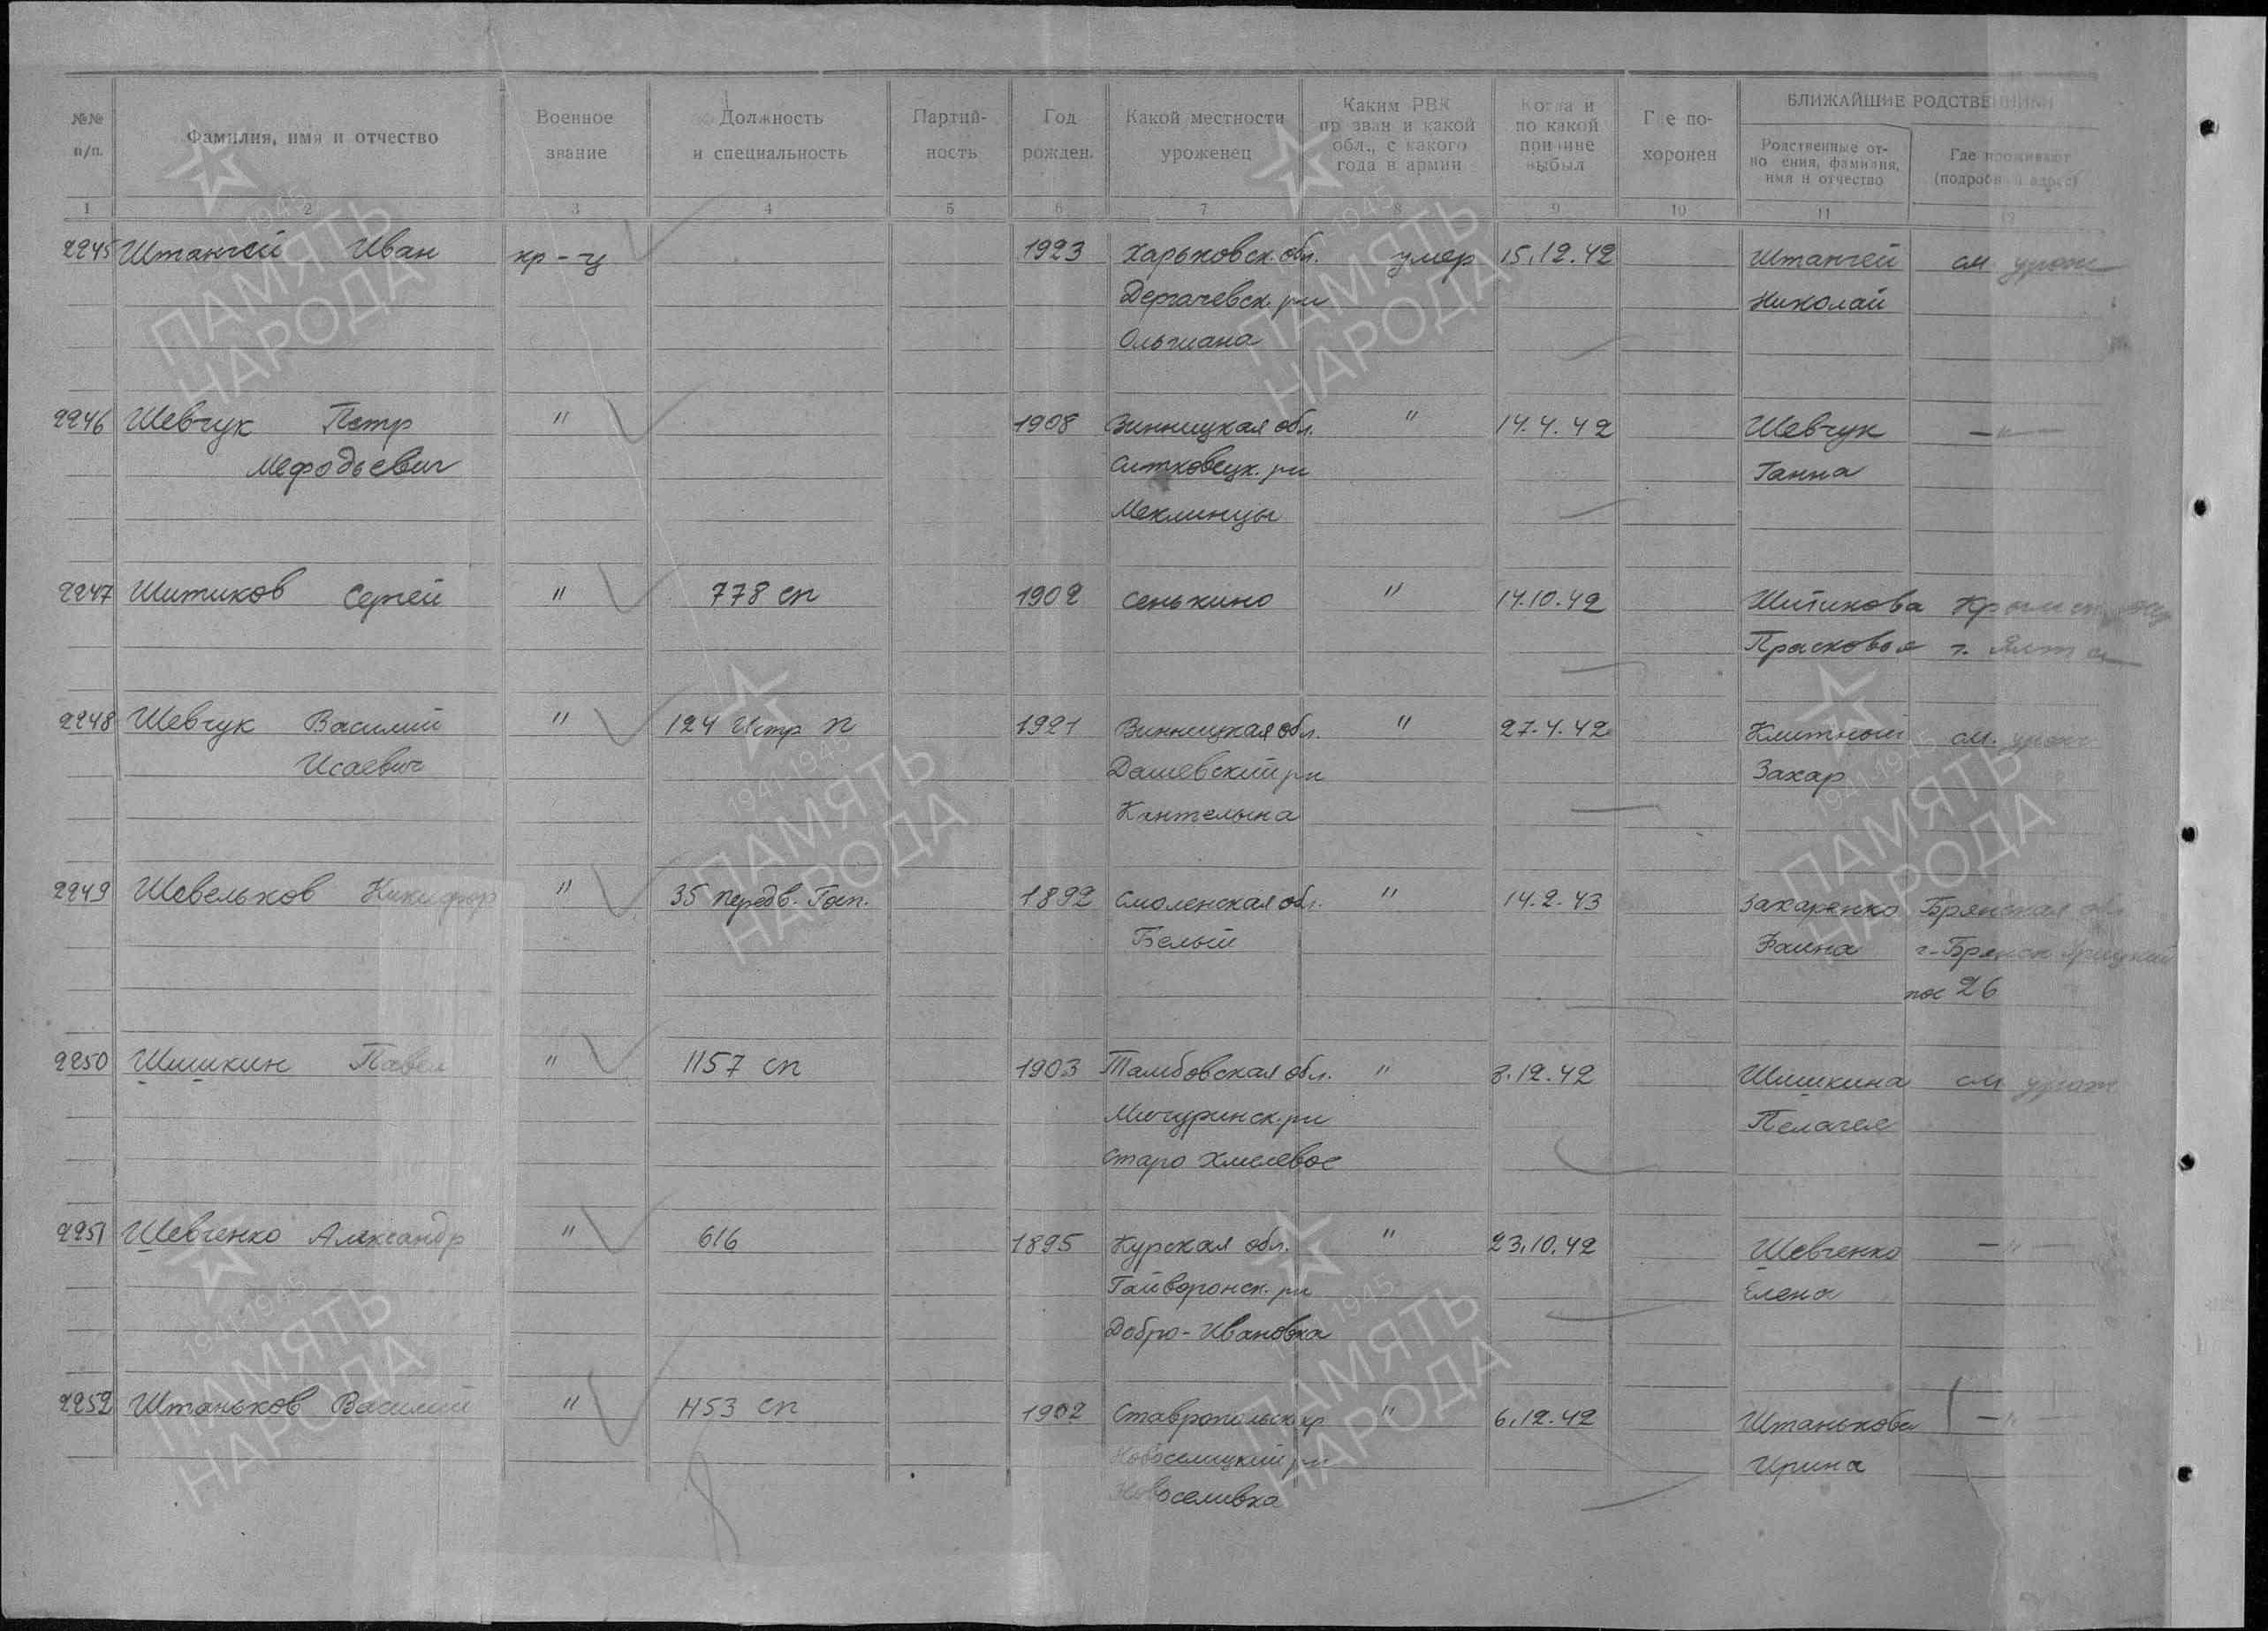 №№ п/п.
Фамилия, имя и отчество
Военное звание
Должность и специальность
Партий-ность
Год рожден.
Какой местности уроженец
Каким РВК призван и какой обл., с какого года в армии
Когда и по какой причине выбыл
Где по-хоронен
БЛИЖАЙШИЕ РОДСТВЕННИКИ
Родственные от-ношения, фамилия, имя и отчество
Где проживают (подробный адрес)
1 2 3 4 5 6 7 8 9 10 11 12
2245 Штангей Иван кр-ц 1923 Харьковск. обл. умер 15.12.42 Штангей см. урож
Дергачевск. рн Николай
Ольшана
2246 Шевчук Петр " 1908 Винницкая обл. " 14.4.42 Шевчук —"—
Мефодьевич Ситковецк. рн Ганна
Меклинцы
2247 Шитиков Сергей " 778 сп 1902 Сенькино " 14.10.42 Шитикова
Прасковья г. Ялта
2248 Шевчук Василий " 124 Истр п 1921 Винницкая обл. " 27.4.42 Клитный см. урож
Исаевич Дашевский рн Захар
Кантелына
2249 Шавельков Никифор " 35 передв. Госп. 1892 Смоленская обл. " 14.2.43 Захаренко Брянская обл
Белый Фаина г-Брянск Урицкий
пос 26
2250 Шишкин Павел " 1157 сп 1903 Тамбовская обл. " 8.12.42 Шишкина см урож
Мичуринск. рн Пелагея
Старо Хмелевое
2251 Шевченко Александр " 616 1895 Курская обл. " 23.10.42 Шевченко —"—
Гайворонск. рн Елена
Добро-Ивановка
2252 Штаньков Василий " 1153 сп 1902 Ставропольск кр " 6.12.42 Штанькова —"—
Новоселицкий рн Ирина
Новоселивка
1941-1945
ПАМЯТЬ
НАРОДА